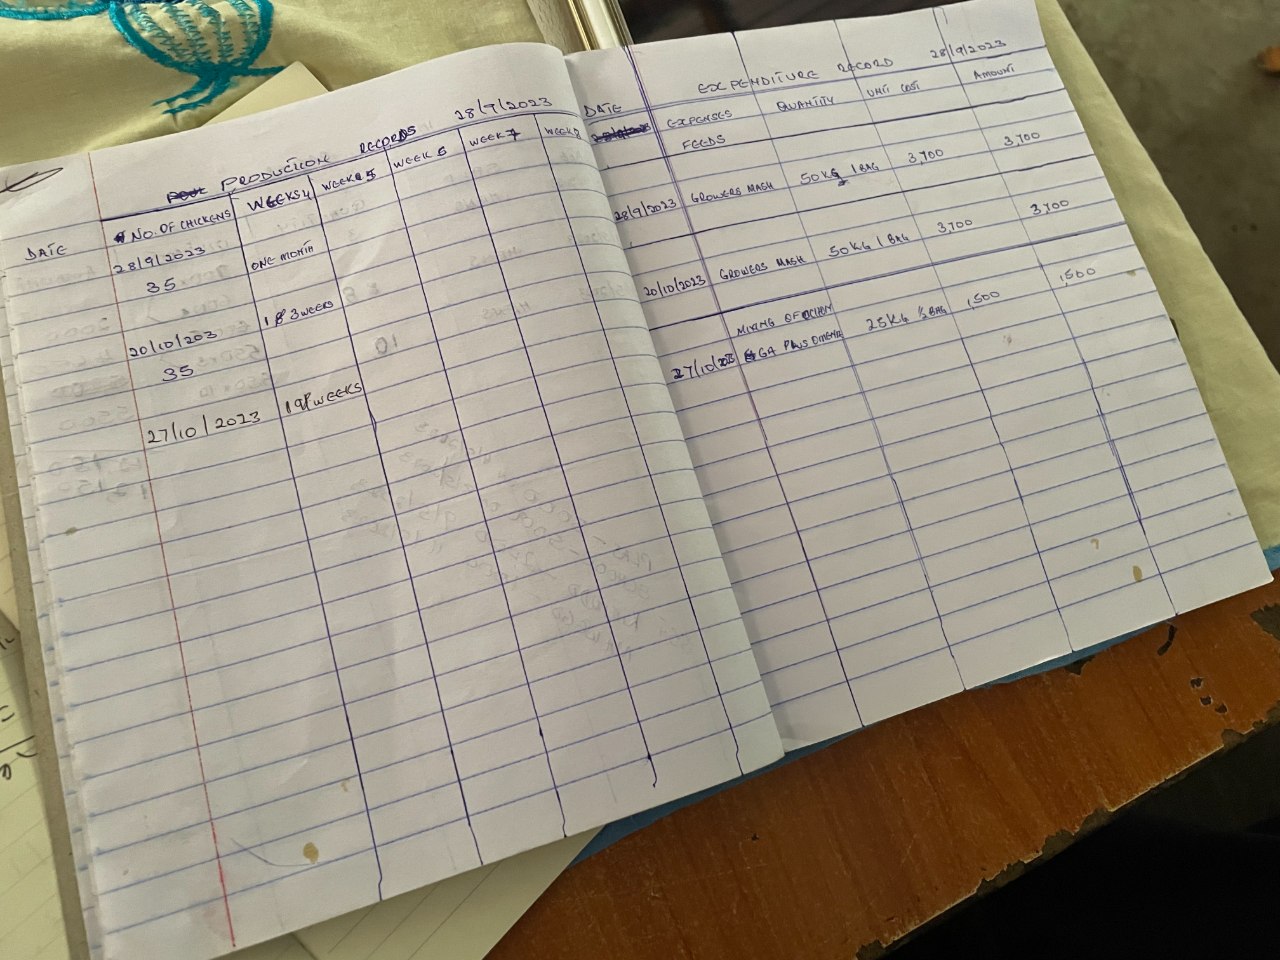 PRODUCTION RECORDS 28/9/2023
DATE NO. OF CHICKENS WEEKS 4 WEEKS 5 WEEK 6 WEEK 7 WEEK 8
28/9/2023 ONE MONTH
35
20/10/203 1 & 3 WEEKS
35
27/10/2023 WEEKS
EXPENDITURE RECORD 28/9/2023
DATE EXPENSES QUANTITY UNIT COST AMOUNT
FEEDS
28/9/2023 GROWERS MASH 50 KG 1 BAG 3,700 3,700
20/10/2023 GROWERS MASH 50 KG 1 BAG 3,700 3,700
MIXING OF
27/10/2023 PLUS OMENA 25 KG 1/2 BAG 1,500 1,500